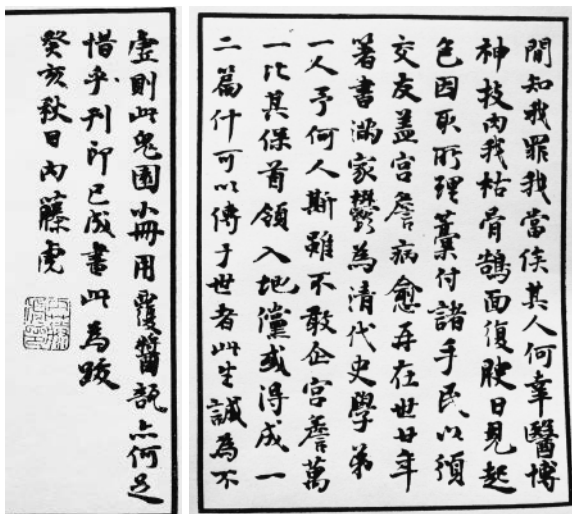 間知我罪我當俟其人何幸醫博
神技肉我枯骨鵠面復腴日見起
色因取所理藁付諸手民以頒
交友蓋宮詹病愈再在世廿年
著書滿家欝為清代史學弟
一人予何人斯雖不敢企宮詹萬
一比其保首領入地儻或得成一
二篇什可以傳于世者此生誠為不
虛則此兔園小冊用覆醬瓿亦何足
惜乎刊印已成書此為跋
癸亥秋日內藤虎